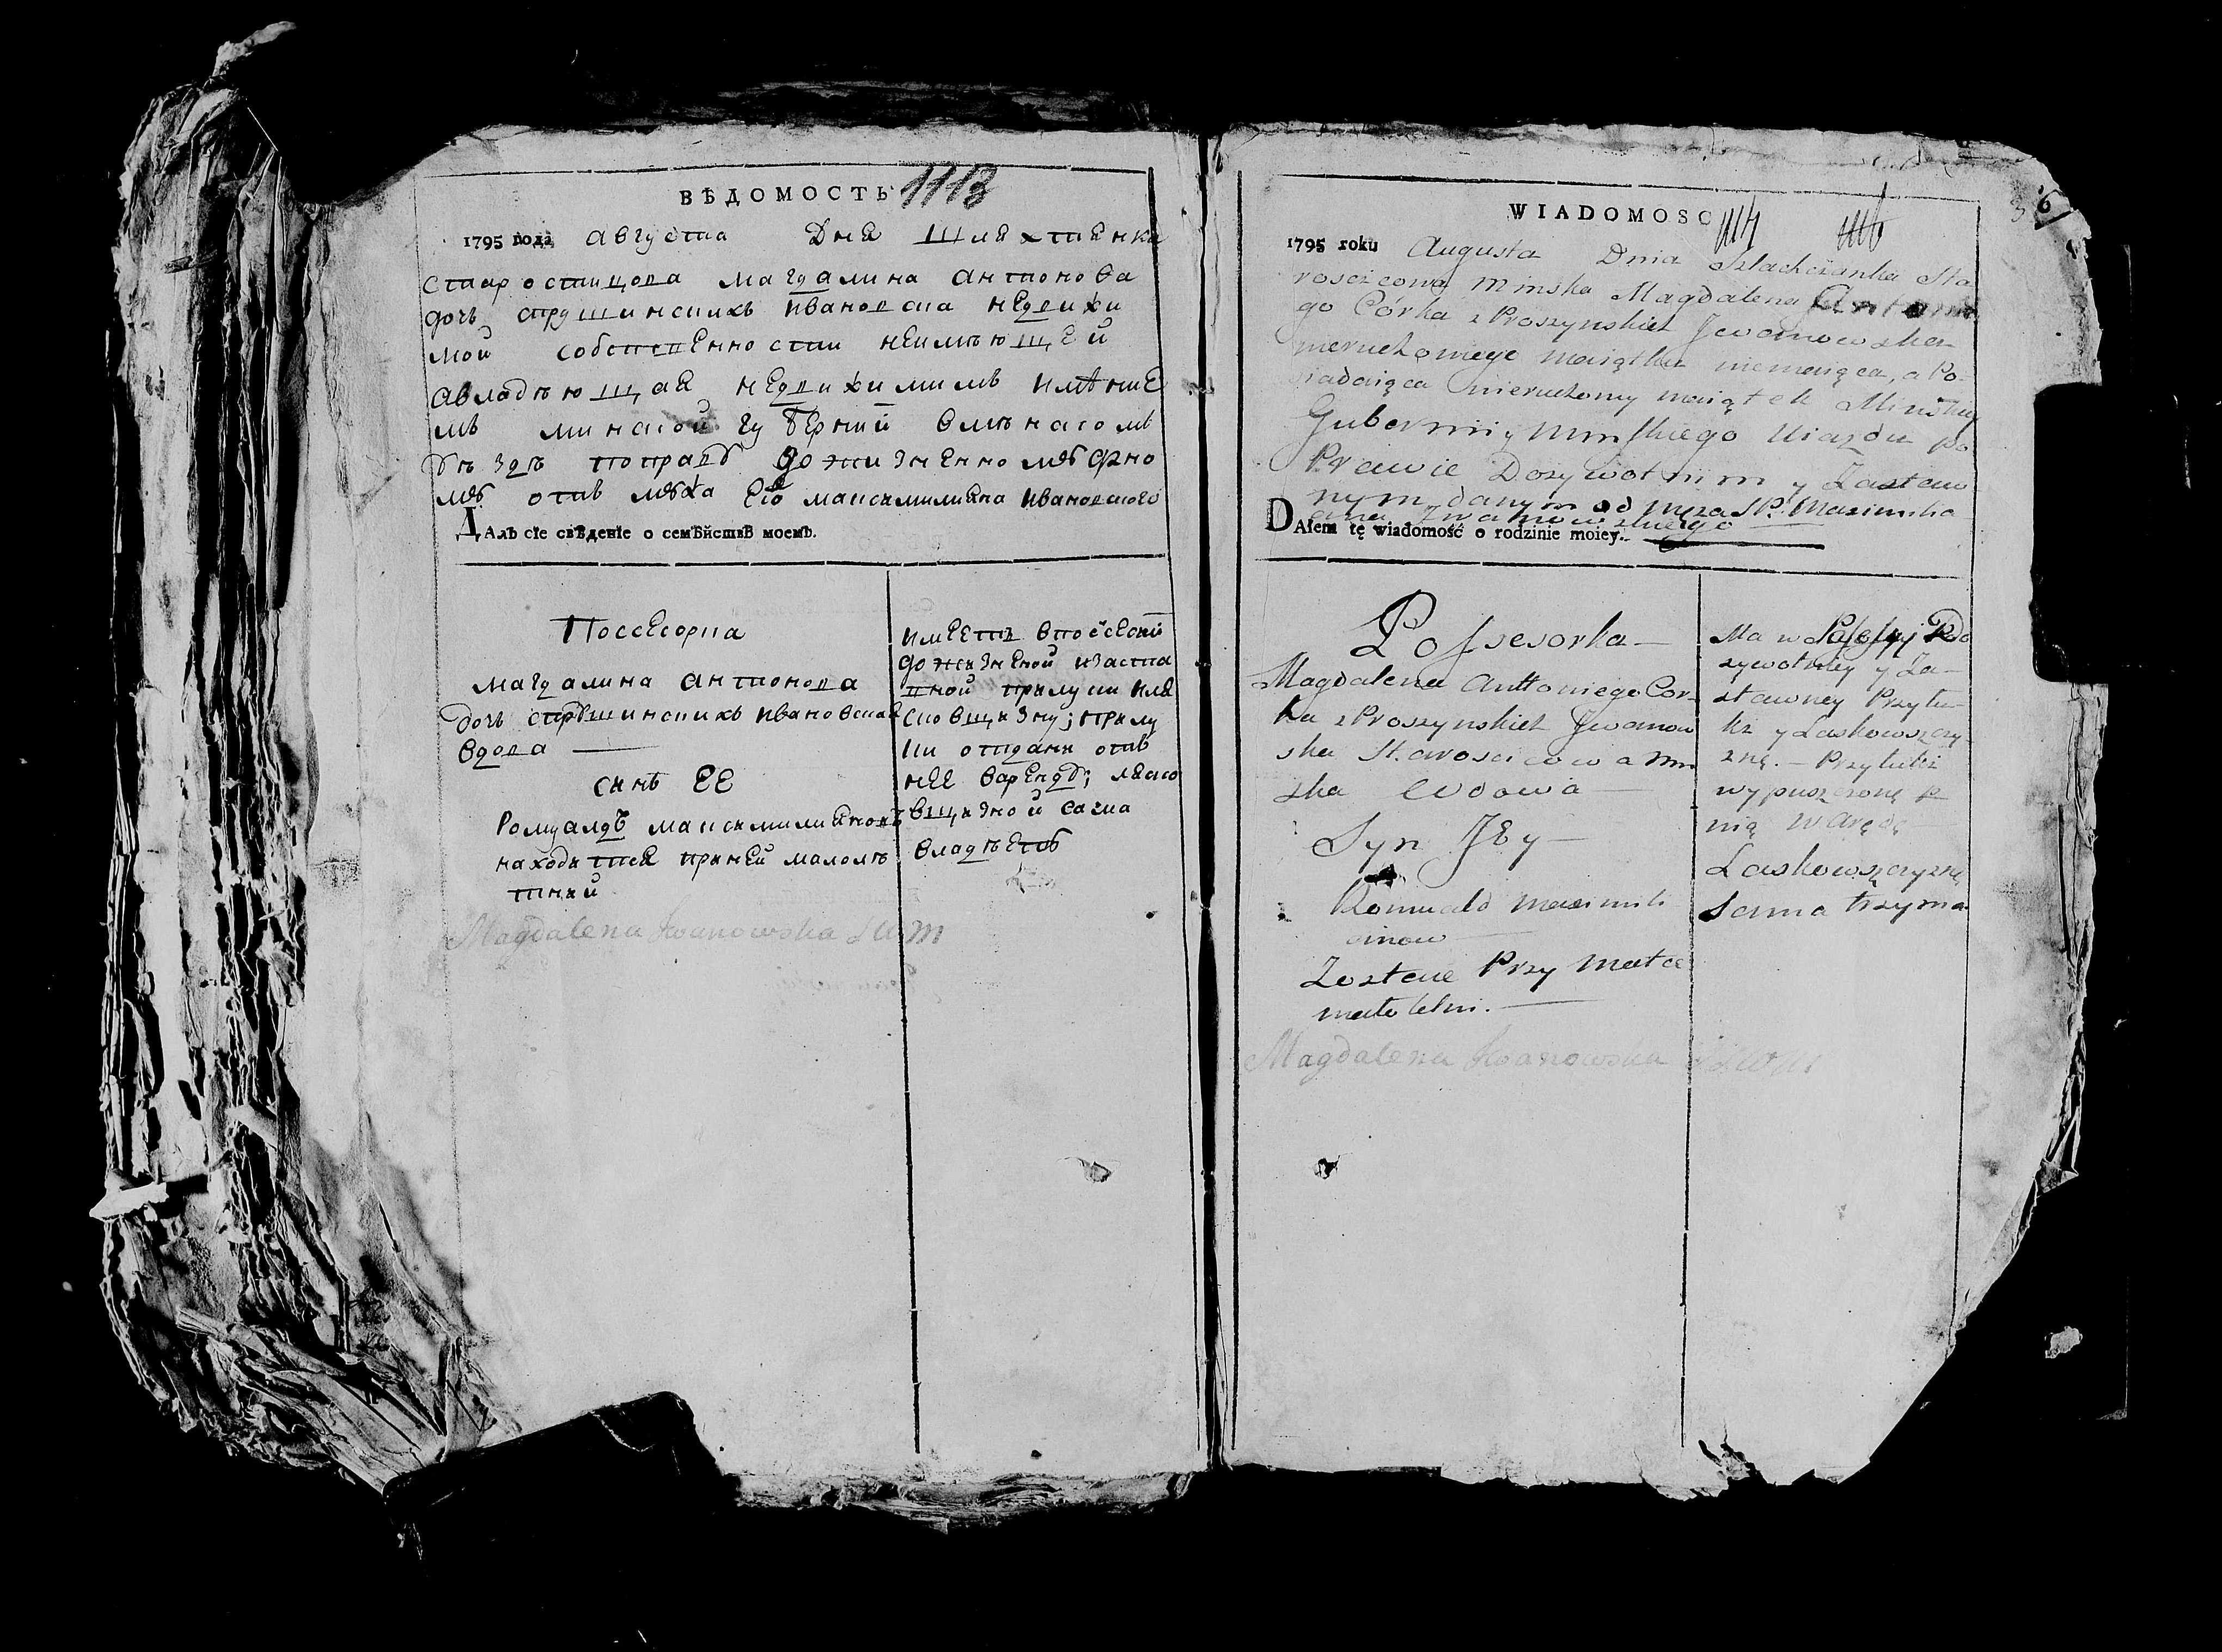 ВѢДОМОСТЬ 1113
1795 года августа Дня Шляхтянка
старостицова Магдалина Антонова
дочь Прушинскихъ Ивановска недвижи
мой собственности неимѣющей
авладѣющая недвижимимъ имѣние
мъ Минской губернии вминскомъ
уѣздѣ поправу дожизненному
отъ мужа Ею Максимилияна Ивановского
ДАлъ сіе свѣденіе о семѣйствѣ моемъ.
Поссесорка
Магдалина Антонова
дочь Прушинскихъ Ивановская
вдова
синъ ее
Ромуалдъ Максимилияновъ
находится приней малолѣ
тний
Magdalena Iwanowska S W M
имеетъ впоссесии
дожизненой изаста
вной прилуки иля
сковщизну; прилу
ки отдани отъ
нее варенду; ляско
вщизной сама
владѣетъ
WIADOMOSC 1114 1116
36
1795 roku Augusta Dnia Szlachcianka Sta
roscicowa Minska Magdalena Antonie
go Córka z Proszynskich Jwanowska
nieruchomego maiątku niemaiąca, a Po
siadaiąca nieruchomy maiątek Minskiey
Gubernii y Minskiego Uiazdu po
Prawie Dozywotnim y Zastaw
nym danym od męża SP. Maximilia
ana Jwanowskiego
DAłem tę wiadomość o rodzinie moiey.
Possesorka
Magdalena Anttoniego Cor
ka z Proszynskich Jwanow
ska Staroscicowa Min
ska Wdowa
Syn Jey
Romuald Maximili
anow
Zostaie Przy Matce
małoletni.
Magdalena Iwanowska S W M
Ma w Possessyi Do
zywotniey y Za
stawney Przyłu
ki y Laskowszczy
znę. Przyłuki
wypuszczone
nią w Aredę
Laskowszczyznę
Sama trzyma